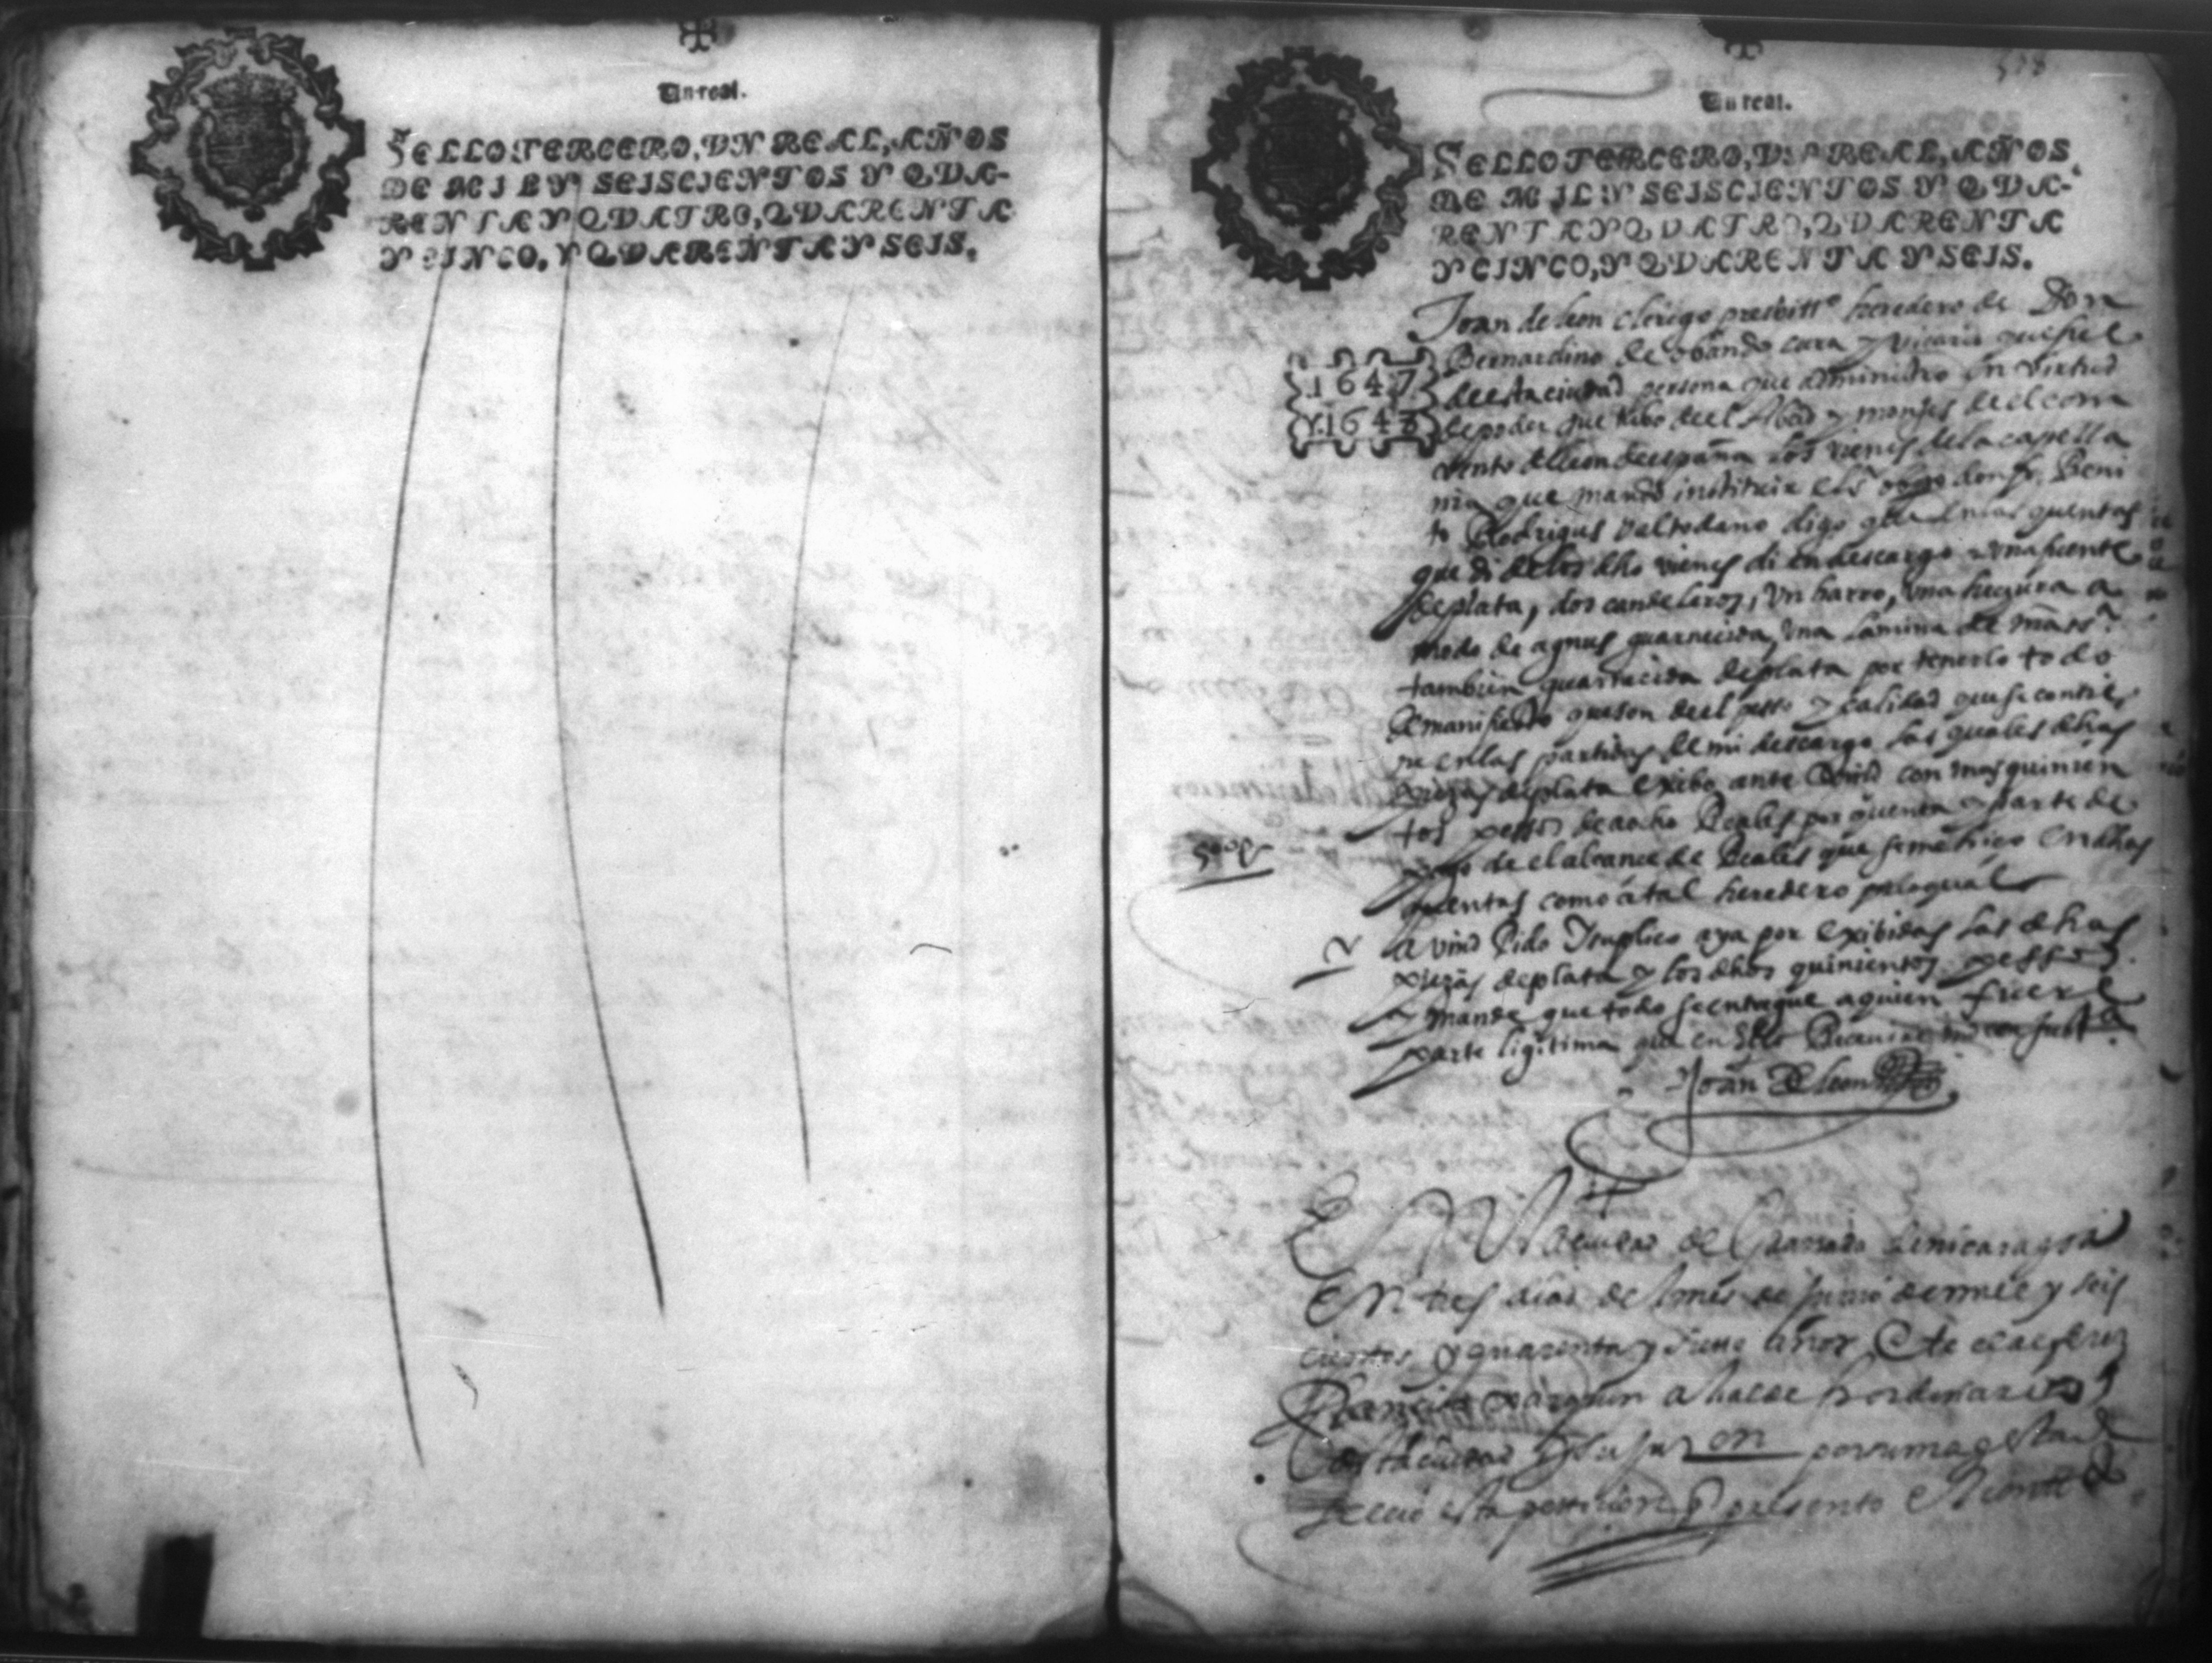 Un real.
SELLO TERCERO, VN REAL, AÑOS
DE MIL Y SEISCIENTOS Y QVA-
RENTA Y QVATRO, QVARENTA
Y CINCO, Y QVARENTA Y SEIS.
Un real.
SELLO TERCERO, VN REAL, AÑOS
DE MIL Y SEISCIENTOS Y QVA-
RENTA Y QVATRO, QVARENTA
Y CINCO, Y QVARENTA Y SEIS.
1647
Y.1648
Joan de leon clerigo presbittº heredero de Don
Bernardino de obando cura y vicario que fue
de esta ciudad persona que administro en virtud
de poder que tubo de el Abad y monjes de el com
vento de leon de españa los vienes de la capella
nia que mando instituir el sr obpo don fr. Beni
to Rodrigues valtodano digo que en las quentas
que di de los dho vienes di en descargo una fuente
de plata, dos candeleros, un barro, una hechura a
modo de agnus guarnecida, una lamina de
tambien guarnecida de plata por tenerlo todo
de manifiesto que son de el peso y calidad que se contie
ne en las partidas de mi descargo las quales dhas
piezas de plata exibo ante Vmd con mas quinien
tos pessos de a ocho Reales por quenta y parte de
pago de el alcance de Reales que se me hiço en dhas
quentas como a tal heredero por lo qual
500 p
A vmd Pido y suplico aya por exibidas las dhas
piezas de plata y los dhos quinientos pessos
y mande que todo se entregue a quien fuere
parte ligitima que en ello Recivire md con justª
Joan de leon
En la ciudad de Granada de nicaragua
En tres dias del mes de junio de mill y seis
cientos y quarenta y siete años Ante el alferez
Francisco alcalde hordinario
desta ciudad y su jur on por su magestad
se leio esta peticion q presento el contdo